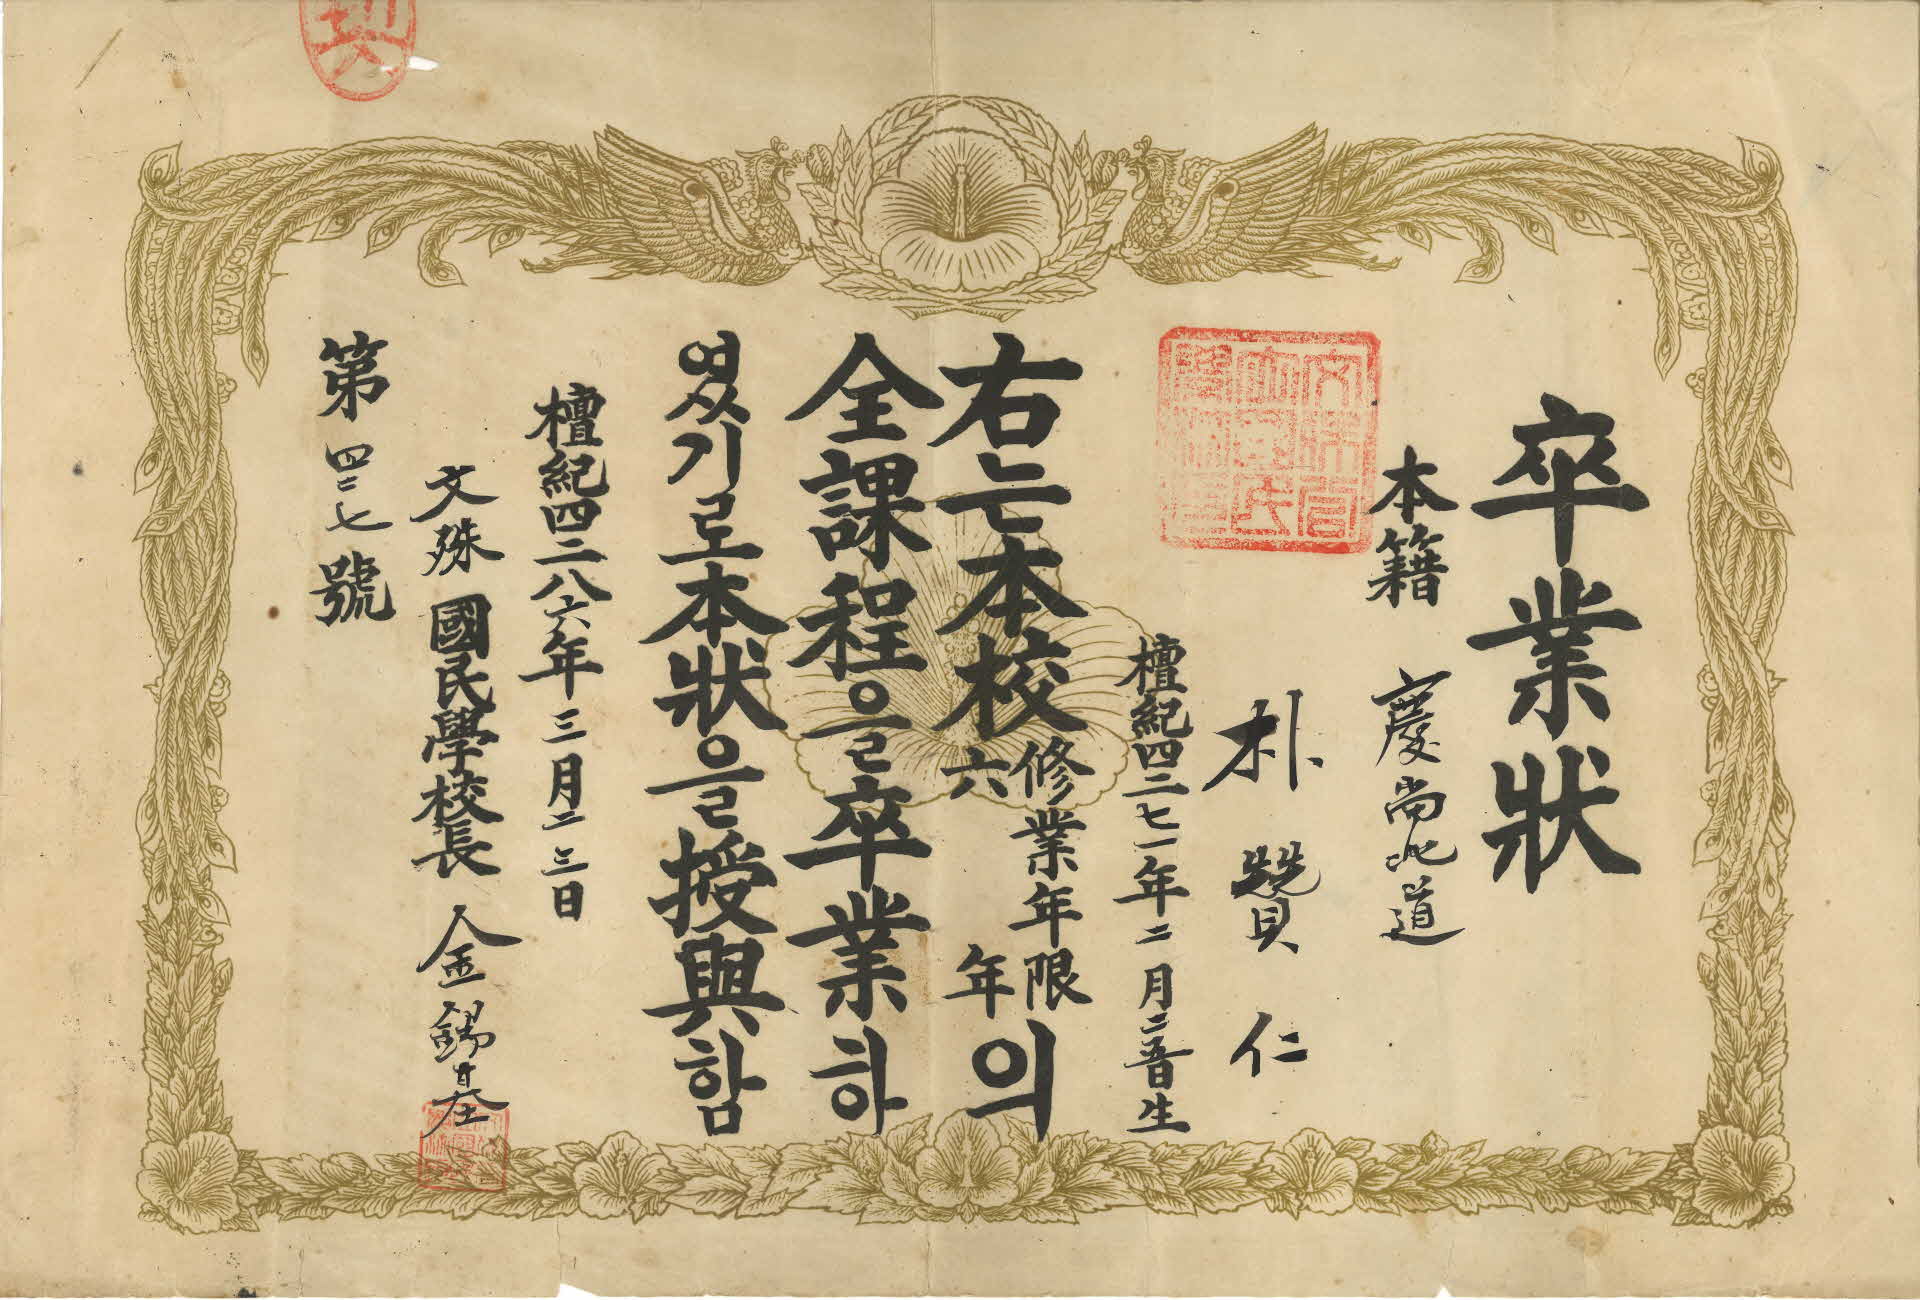 卒業狀
本籍 慶尚北道
朴贊仁
檀紀四二七一年二月二五日生
右는本校修業年限六年의
全課程을卒業하
였기로本狀을授與함
檀紀四二八六年三月二三日
文殊國民學校長 金錫基
第四二七號